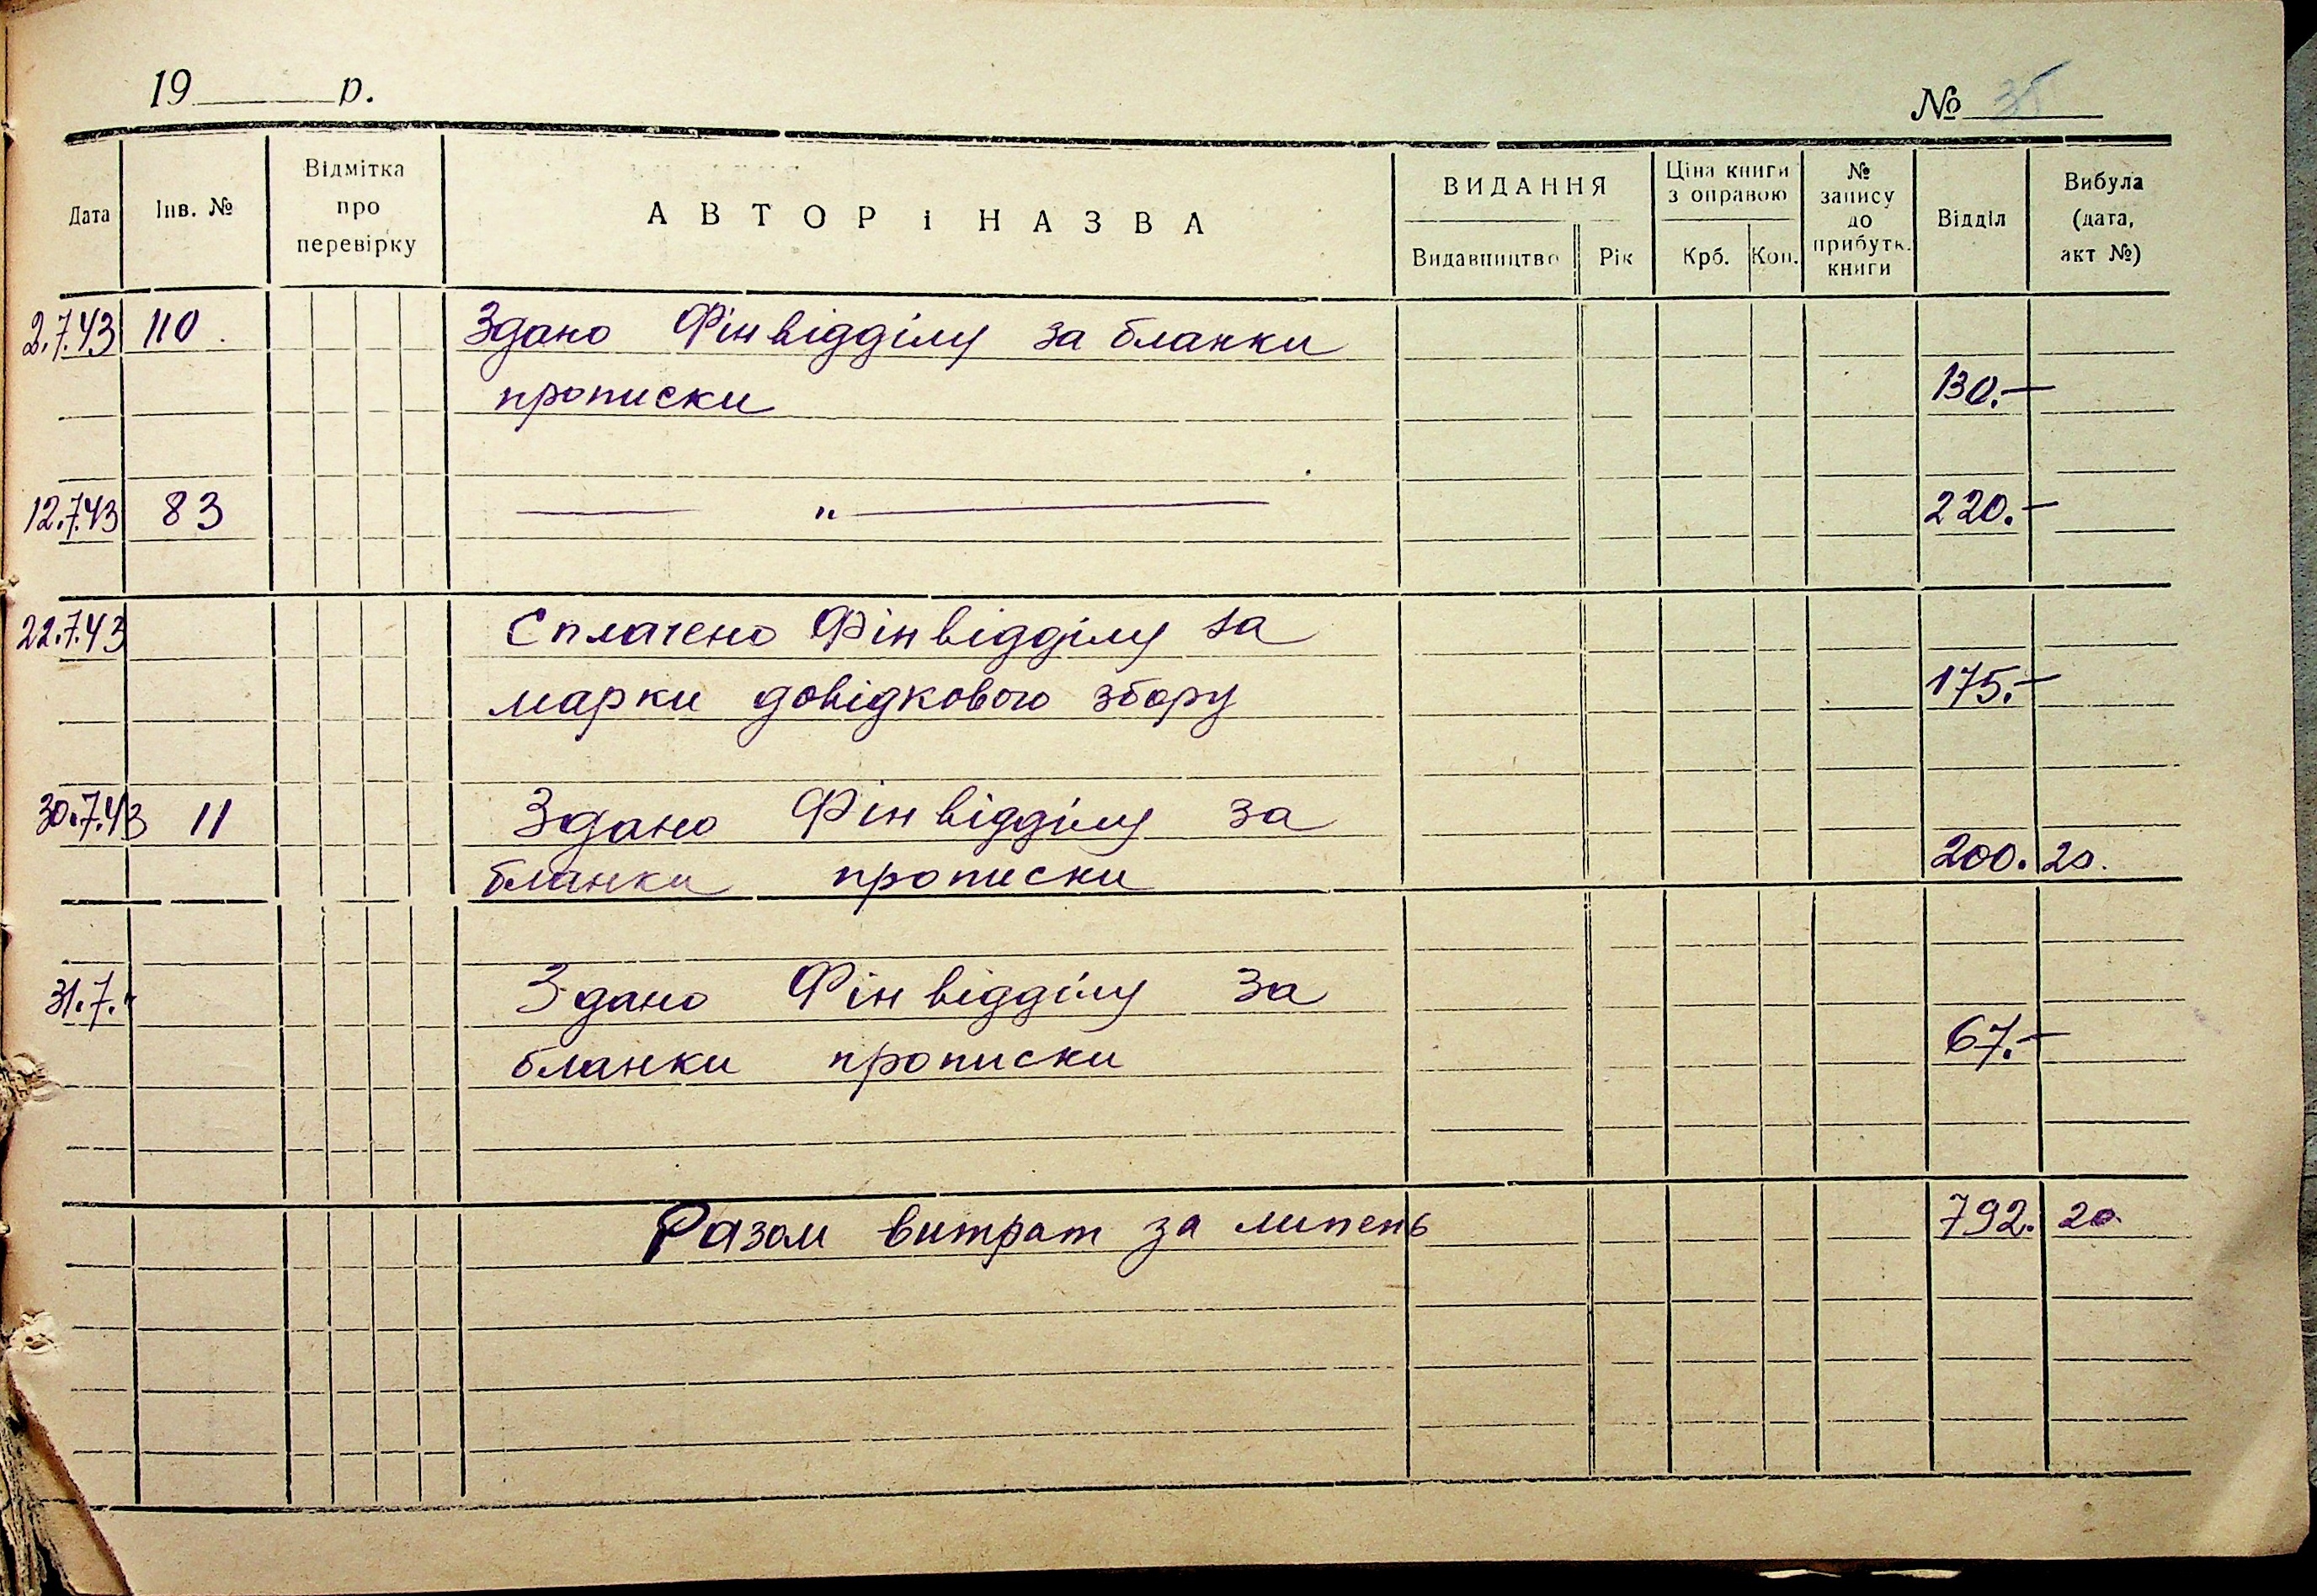 19 р.
№ 35
Дата Інв. № Відмітка про перевірку АВТОР І НАЗВА ВИДАННЯ Видавництво Рік Ціна книги з оправою Крб. Коп. № запису до прибутк. книги Відділ Вибула (дата, акт №)
2.7.43 110. Здано Фінвідділу за бланки
прописки 130.—
12.7.43 83 — " — 220.—
22.7.43 Сплачено Фінвідділу за
марки довідкового збору 175.—
30.7.43 11 Здано Фінвідділу за
бланки прописки 200. 20.
31.7." Здано Фінвідділу за
бланки прописки 67.—
Разом витрат за липень 792. 20.